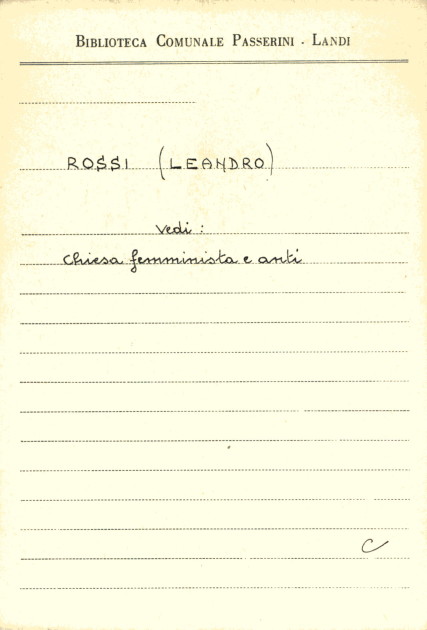 BIBLIOTECA COMUNALE PASSERINI - LANDI
ROSSI (LEANDRO)
Vedi:
Chiesa femminista e anti
C